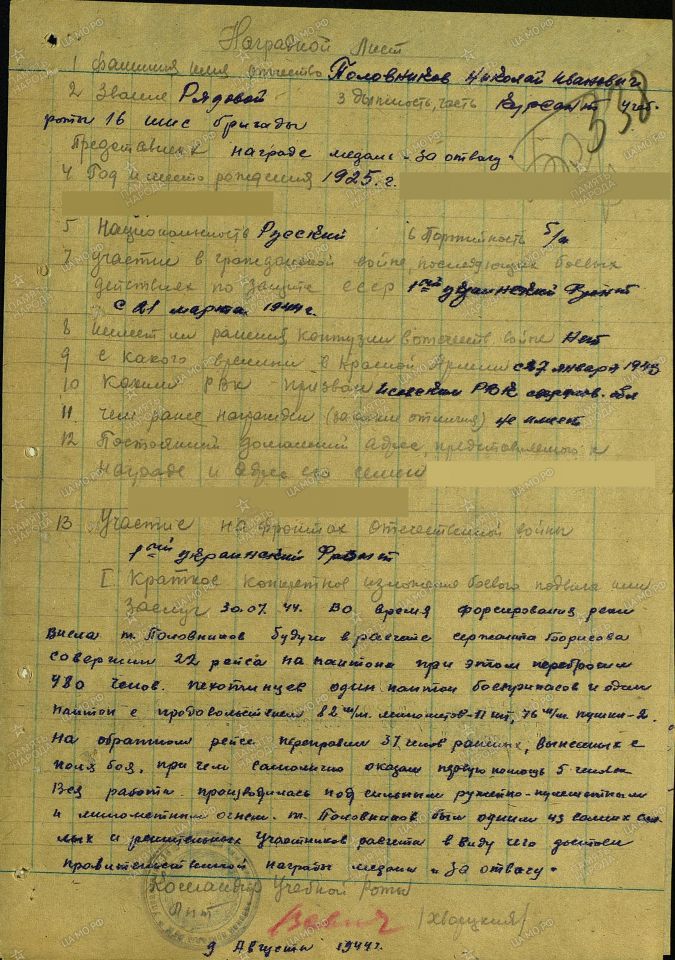 Наградной Лист
538
1 Фамилия имя отчество Половников Николай Иванович
2 Звание Рядовой 3 Должность, часть Курсант учеб.
роты 16 шис бригады
Представлен к награде медаль - За отвагу -
4 Год и место рождения 1925 г.
5 Национальность Русский 6 Партийность б/п
7 Участие в гражданской войне, последующих боевых
действиях по защите СССР 1ый Украинский Фронт
с 21 марта 1944 г.
8 имеет ли ранения, контузии в отечеств. войне Нет
9 с какого времени в Красной Армии с 27 января 1943
10 Каким РВК призван РВК обл
11. чем ранее награжден (за какие отличия) не имеет
12 Постоянный домашний адрес, представляемого к
награде и адрес его семьи
13 Участие на фронтах отечественной войны
1ый Украинский Фронт
I Краткое конкретное изложение боевого подвига или
заслуг 30.07.44. Во время форсирования реки
Висла т. Половников будучи в расчете сержанта Борисова
совершил 22 рейса на понтоне при этом перебросил
480 челов. пехотинцев один понтон боеприпасов и один
понтон с продовольствием 82 м/м. минометов - 11 шт, 76 м/м. пушки - 2.
На обратном рейсе переправил 37 челов раненых, вынесеных с
поля боя, при чем самолично оказал первую помощь 5 человек
Вся работа производилась под сильным ружейно-пулеметным
и минометным огнем. т. Половников был одним из самых сме-
лых и решительных участников расчета в виду чего достоен
правительственной награды медали „За отвагу"
Командир Учебной Роты
/Хвоцкий/
9 Августа 1944 г.